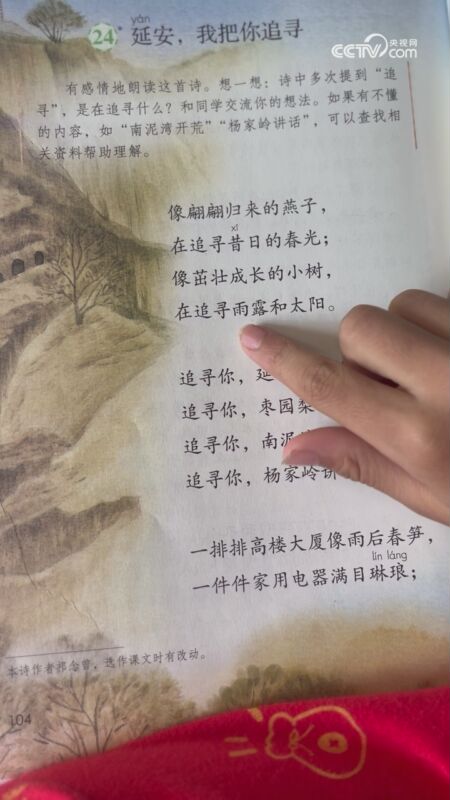 CCTV.com 央视网
yán
24 延安，我把你追寻
有感情地朗读这首诗。想一想：诗中多次提到“追
寻”，是在追寻什么？和同学交流你的想法。如果有不懂
的内容，如“南泥湾开荒”“杨家岭讲话”，可以查找相
关资料帮助理解。
像翩翩归来的燕子，
xī
在追寻昔日的春光；
像茁壮成长的小树，
在追寻雨露和太阳。
追寻你，延
追寻你，枣园梨
追寻你，南泥
追寻你，杨家岭讲
一排排高楼大厦像雨后春笋，
lín láng
一件件家用电器满目琳琅；
本诗作者祁念曾，选作课文时有改动。
104